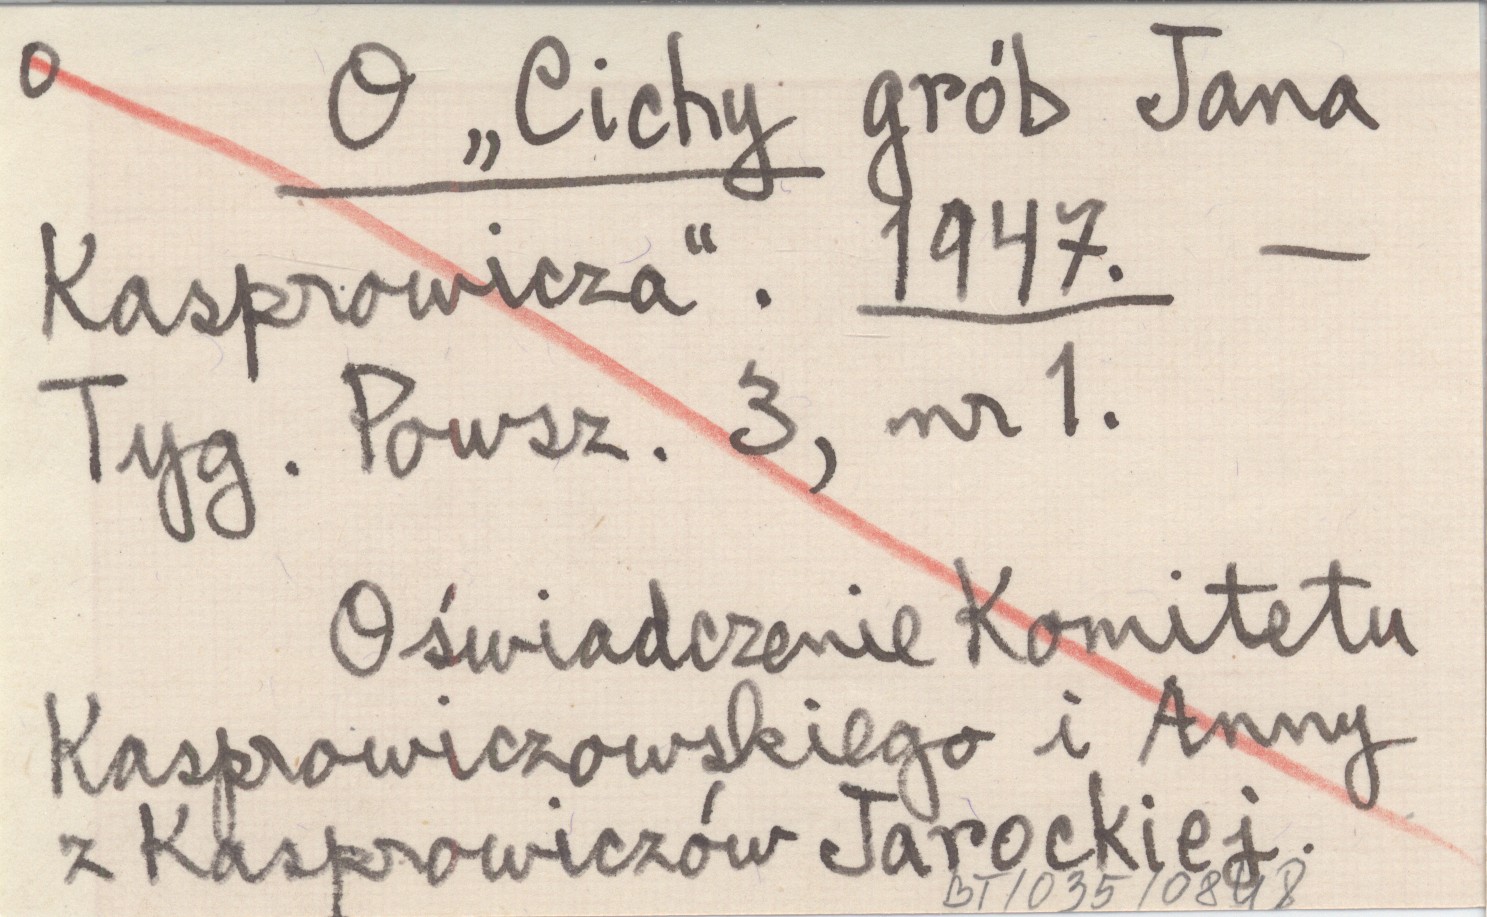 O O „Cichy grób Jana
Kasprowicza“. 1947. —
Tyg. Powsz. 3, nr 1.
Oświadczenie Komitetu
Kasprowiczowskiego i Anny
z Kasprowiczów Jarockiej.
BT/035/0848